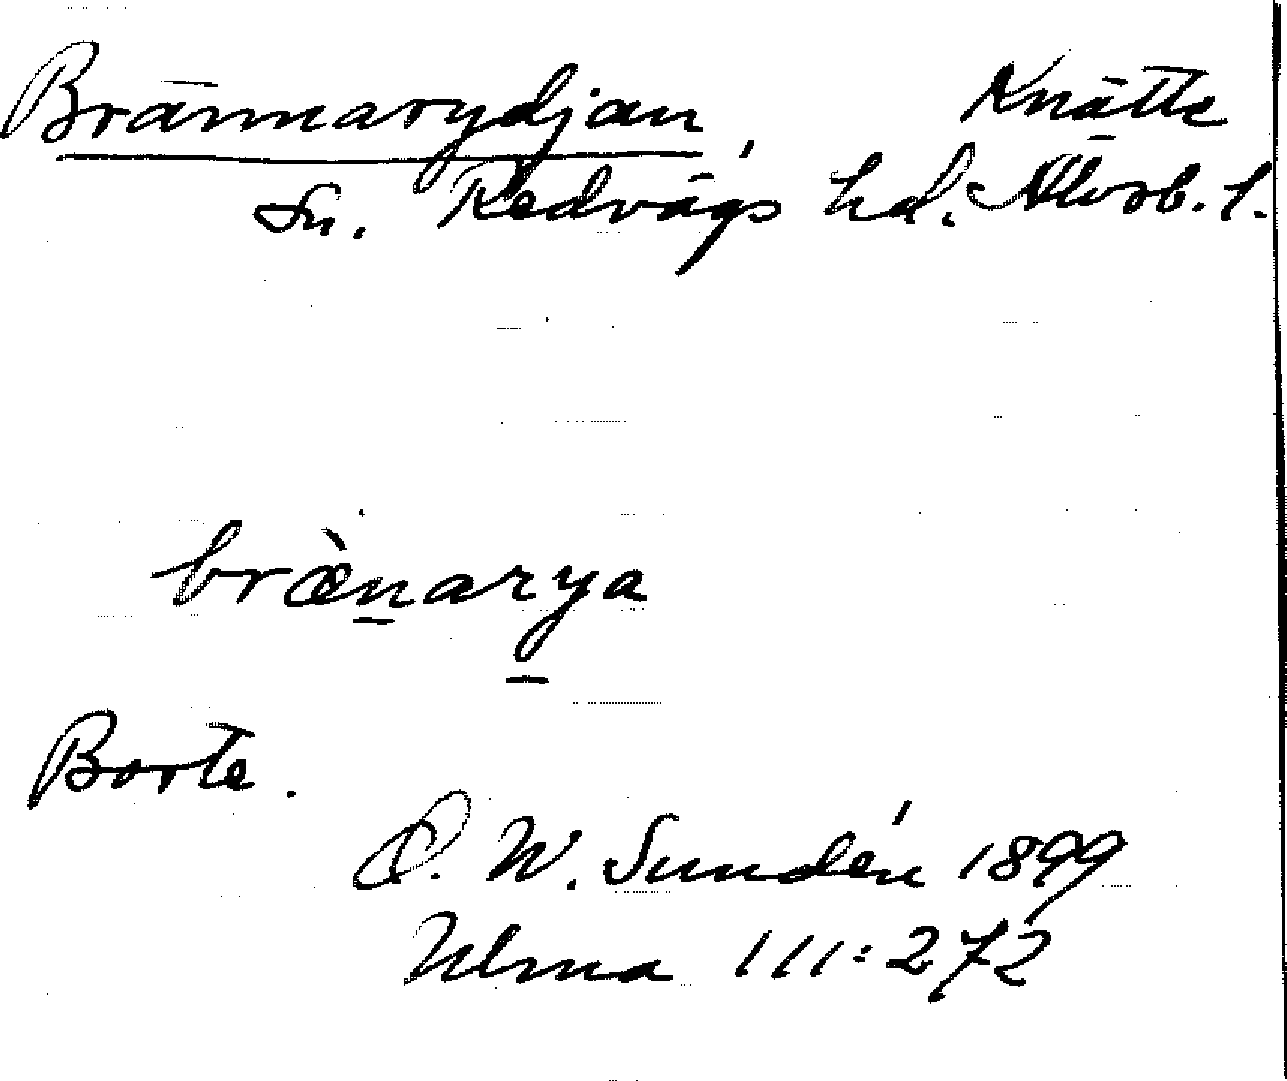 Brännarydjan, Knätte
Sn. Redvägs hd. Älvsb. l.
bræ̀n̲ary̲a
Borte.
D. W. Sundén 1899
Ulma 111:272